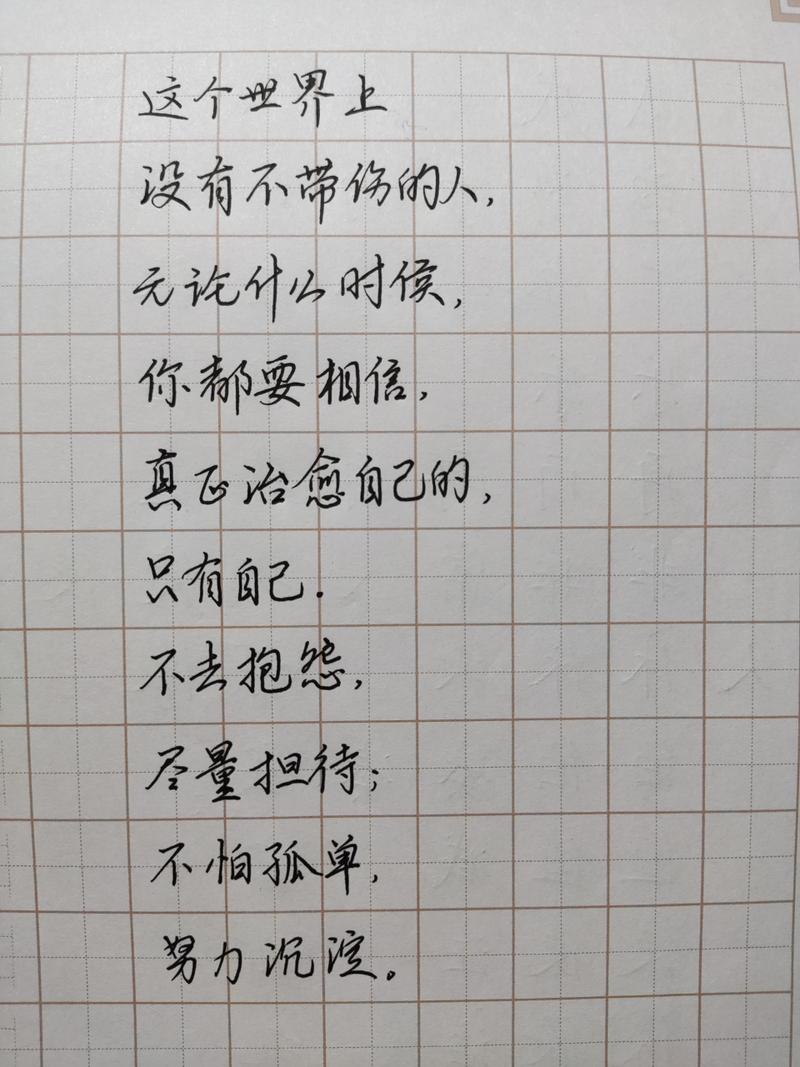 这个世界上
没有不带伤的人,
无论什么时候,
你都要相信,
真正治愈自己的,
只有自己.
不去抱怨,
尽量担待;
不怕孤单,
努力沉淀。